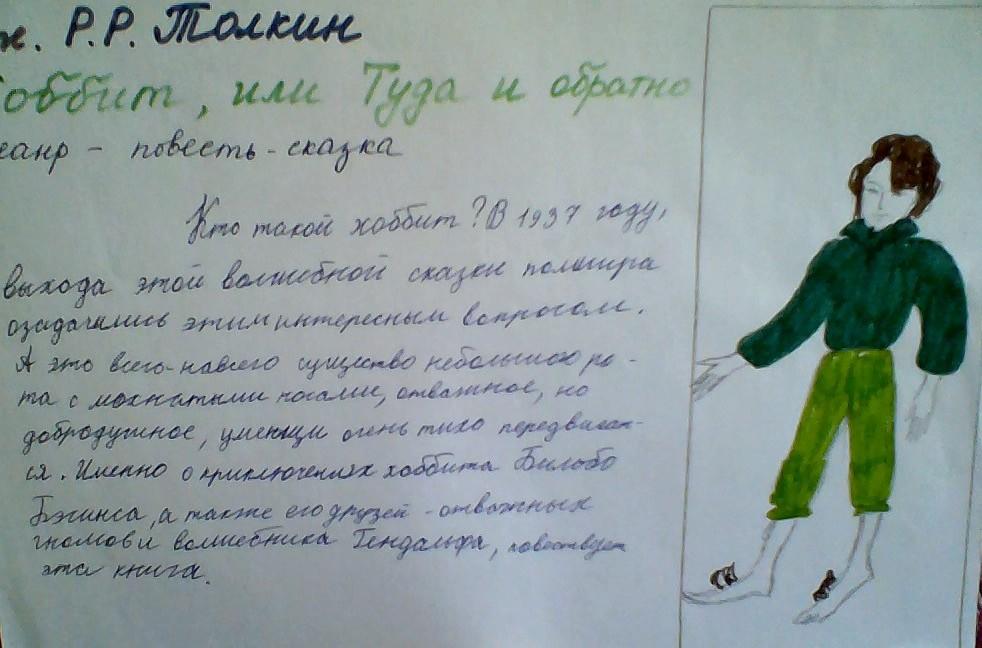 ж. Р.Р. Толкин
Хоббит, или Туда и обратно
жанр - повесть-сказка
Кто такой хоббит? В 1937 году,
выхода этой волшебной сказки полмира
озадачились этим интересным вопросом.
А это всего-навсего существо небольшого ро-
та с мохнатыми ногами, отважное, но
добродушное, умеющи очень тихо передвигат-
ся. Именно о приключениях хоббита Бильбо
Бэгинса, а также его друзей - отважных
гномов и волшебника Гендальфа, повествует
эта книга.